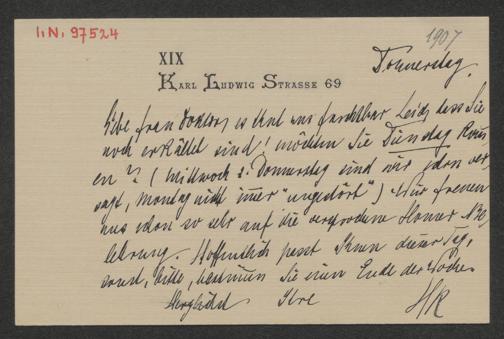 I.N. 97524
1907
XIX
Karl Ludwig Strasse 69
Donnerstag.
Liebe Frau Doktor, es thut uns furchtbar Leid, dass Sie
noch erkältet sind! möchten Sie Dienstag kom¯
en? (Mittwoch u. Donnerstag sind wir schon ver¯
sagt, Montag nicht immer "ungestört") Wir freuen
uns schon so sehr auf die versprochene Homer Be¯
lehrung. Hoffentlich passt Ihnen dieser Tag,
sonst, bitte, bestimmen Sie einen Ende der Woche.
Herzlichst Ihre
HK